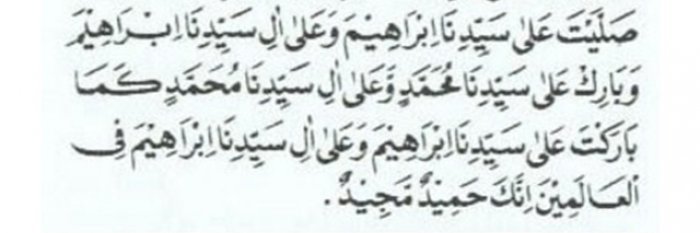 صَلَّيْتَ عَلٰى سَيِّدِنَا اِبْرَاهِيْمَ وَعَلٰى اٰلِ سَيِّدِنَا اِبْرَاهِيْمَ
وَبَارِكْ عَلٰى سَيِّدِنَا مُحَمَّدٍ وَّعَلٰى اٰلِ سَيِّدِنَا مُحَمَّدٍ كَمَا
بَارَكْتَ عَلٰى سَيِّدِنَا اِبْرَاهِيْمَ وَعَلٰى اٰلِ سَيِّدِنَا اِبْرَاهِيْمَ فِى
الْعَالَمِيْنَ اِنَّكَ حَمِيْدٌ مَّجِيْدٌ .